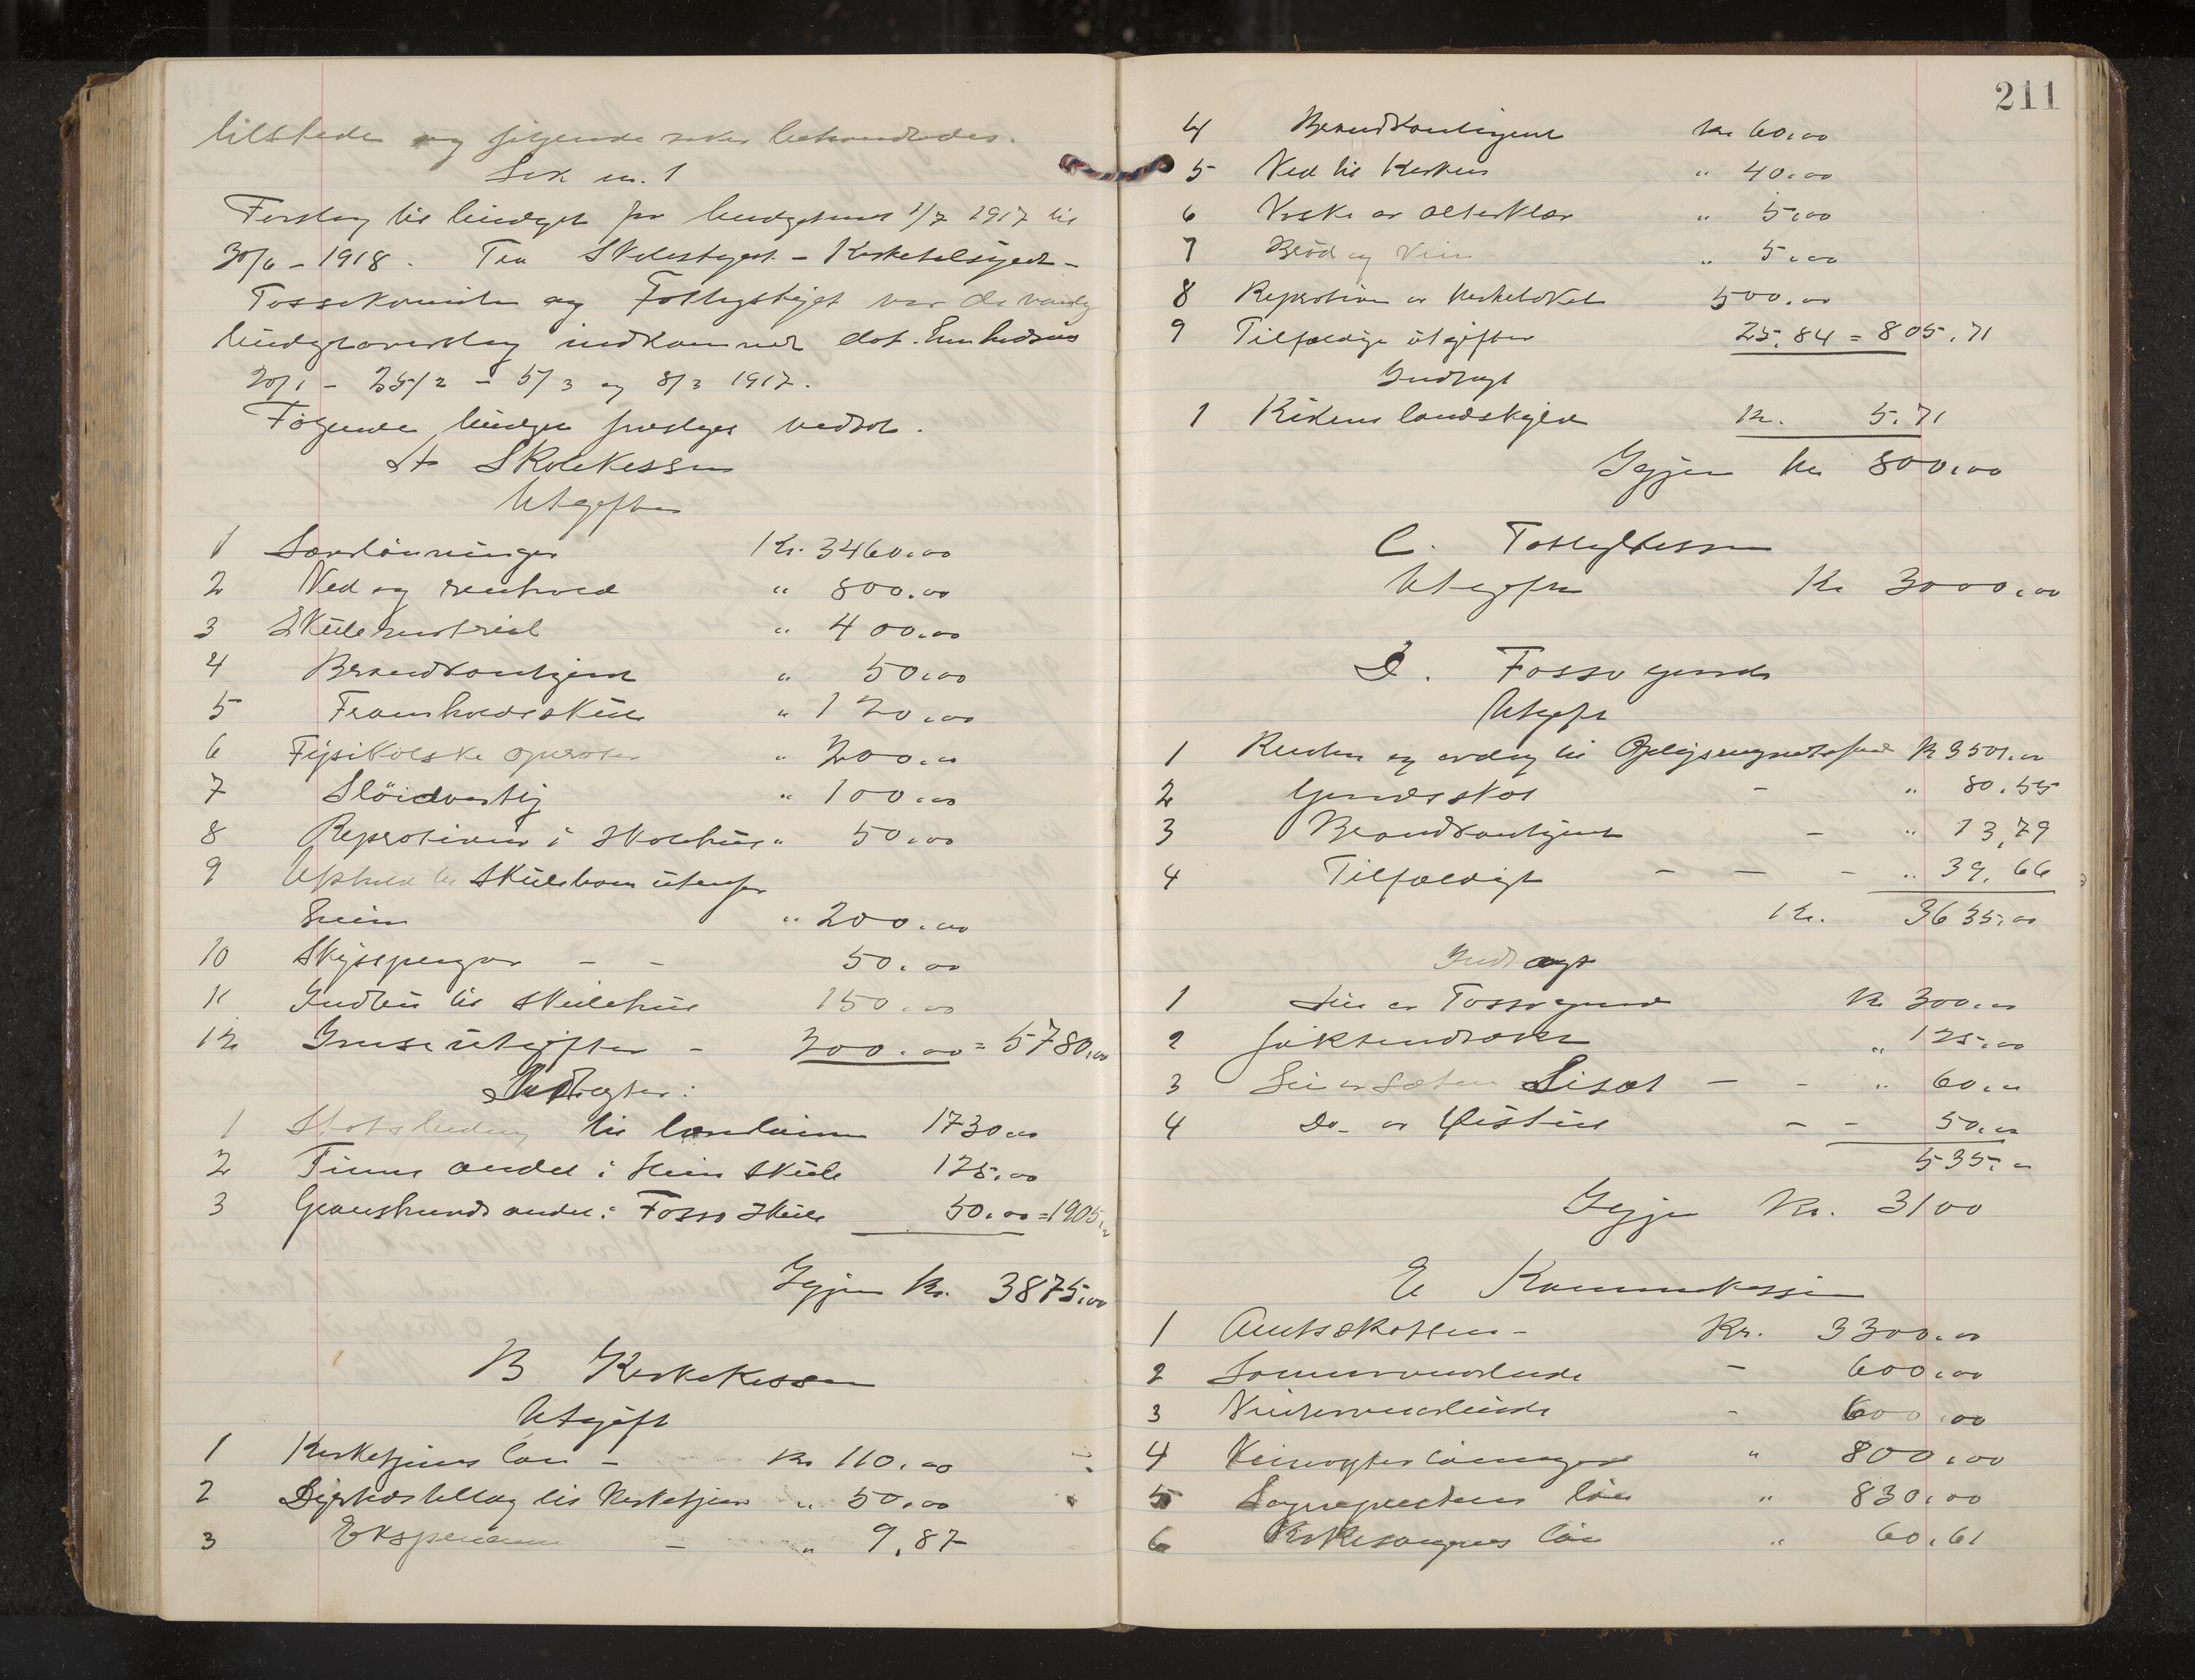 tilstede og følgende saker behandledes.
Sak nr. 1
Forslag til budget for budgetaaret 1/7 1917 til
30/6 - 1918. Fra Skolestyret - Kirketilsynet -
Fossokomiten og Fattigstyret var de vanlige
budgetoverslag indkommet dat. henholdsvis
20/1 - 25/2 - 5/3 og 8/3 1917.
Følgende budget foreslages vedtat.
A Skolekassen
Utgifter
1 Lærerlønninger Kr. 3460.00
2 Ved og renhold " 800.00
3 Skulemateriel " 400.00
4 Brandkontigent " 50.00
5 Framhaldsskule " 120.00
6 Fysikalske aparater " 200.00
7 Slöidverktøj " 100.00
8 Reparationer i Skolehus " 50.00
9 Ophold til Skulebarn utenfor
heim " 200.00
10 Skysspenger - - 50.00
11 Indbu til Skulehus 150.00
12 Ymse utgifter - 200.00 = 5780.00
Indtægter:
1 Statsbidrag til lærerlønn 1730.00
2 Tinns andel i Hein Skule 125.00
3 Gransherads andel i Fosso Skule 50.00 = 1905.00
Igjen Kr. 3875.00
B Kirkekassen
Utgift
1 Kirketjeners løn - Kr 110.00
2 Dyrtidstillæg til Kirketjener " 50.00
3 Ekspensen - " 9,87
211
4 Brandkontigent Kr 60.00
5 Ved til Kirken " 40.00
6 Vask av alterklær " 5.00
7 Brød og Vin " 5.00
8 Reparation av Kirketaket 500.00
9 Tilfældige utgifter 25.84 = 805.71
Indtægt
1 Kirkens landskyld Kr. 5.71
Igjen Kr 800.00
C. Fattigkassen
Utgifter Kr 3000.00
D. Fosso gaard
Utgift
1 Renter og avdrag til Oplysningsvæsenets fond Kr 3501.00
2 Grundskat - " 80.55
3 Brandkontigent - " 13,79
4 Tilfældigt - - - " 39.66
Kr. 3635.00
Indtægt
1 Leie av Fossogaard Kr 300.00
2 " 125.00
3 Leie av Sæteren - - " 60.00
4 Do - av - - 50.00
535.00
Igjen Kr. 3100
E Kommunekassen
1 Amtsskatten - Kr. 3300.00
2 Sommervedlikehold - 600.00
3 Vintervedlikehold - 600.00
4 Veivogterlønninger " 800.00
5 Sogneprestens løn " 830.00
6 Kirkesangerens løn " 60.61